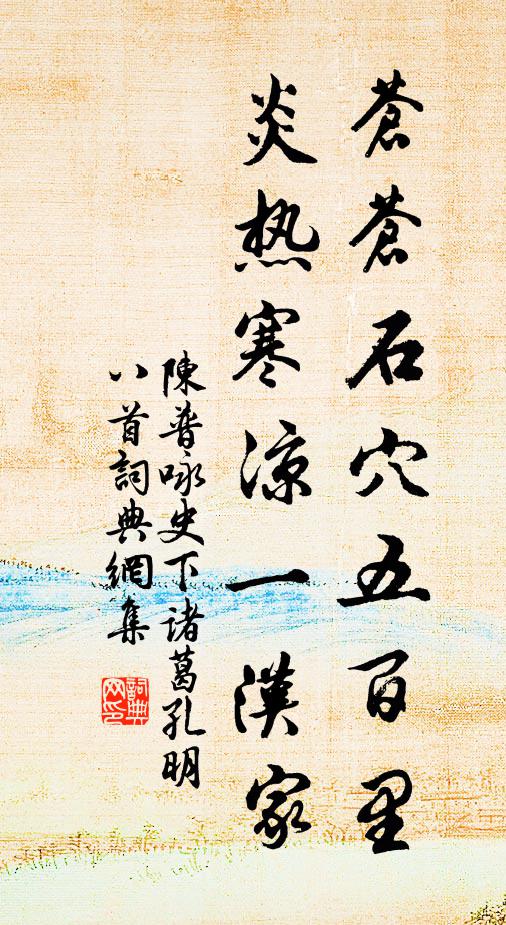 蒼蒼石穴五百里
炎热寒涼一漢家
陳普咏史下诸葛孔明
八首詞典網集
詞典网印